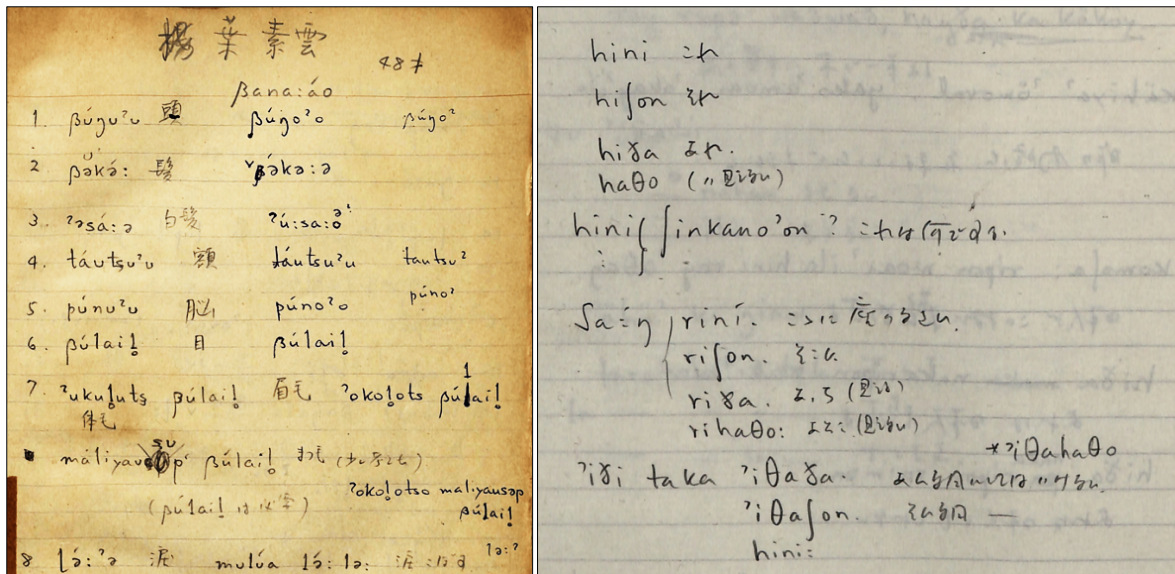 楊葉素雲
48才
βana:áo
1. βúŋuˀu 頭 βúŋoˀo púŋoˀ
2 βə́kə́: 髪 βákə:ə
3. ˀəsá:ə 白髪 ˀú:sa:ə
4. táutʂuˀu 額 táutsuˀu tautsuˀ
5. púnuˀu 脳 púnoˀo púnoˀ
6. βúlaiḷ 目 βúlaiḷ
7. ˀukuḷutʂ βúlaiḷ 眉毛 ˀokoḷots βúlaiḷ
体毛
máliyausəpˀ βúlaiḷ
(βúlaiḷ は必要)
ˀokoḷotso maliyausəp βúlaiḷ
8 ḷə́:ˀə 涙 mulúa lə́:lə: 涙 lə:ˀ
hini これ
hiʃon それ
hiɣa あれ.
haθo (〃 見えない)
hini ʃinkanoˀon? これは何ですか.
ʃa:iŋ rini. ここに座りなさい.
riʃon. そこに
riɣa. (見える)
rihaθo: あそこ (見えない)
*ˀiθahaθo
ˀiɣi taka ˀiθaɣa. あんな風にしてはいけない.
ˀiθaʃon. そんな風 —
hini: